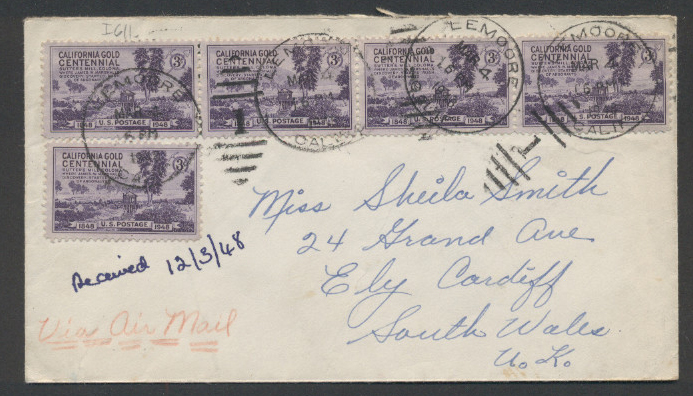 CALIFORNIA GOLD
CENTENNIAL
3¢
1848 U.S. POSTAGE 1948
CALIFORNIA GOLD
CENTENNIAL
3¢
1848 U.S. POSTAGE 1948
CALIFORNIA GOLD
CENTENNIAL
3¢
1848 U.S. POSTAGE 1948
CALIFORNIA GOLD
CENTENNIAL
3¢
1848 U.S. POSTAGE 1948
LEMOORE
MAR 4
CALIF
1
CALIFORNIA GOLD
CENTENNIAL
SUTTER'S MILL, COLOMA
3¢
1848 U.S. POSTAGE 1948
Received 12/3/48
Via Air Mail
Miss Sheila Smith
24 Grand Ave
Ely Cardiff
South Wales.
U.K.